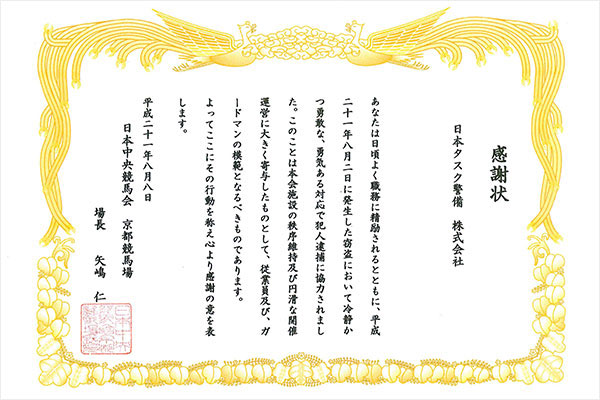 感謝状
日本タスク警備 株式会社
あなたは日頃よく職務に精励されるとともに、平成
二十一年八月二日に発生した窃盗において冷静か
つ勇敢な、勇気ある対応で犯人逮捕に協力されまし
た。このことは本会施設の秩序維持及び円滑な開催
運営に大きく寄与したものとして、従業員及び、ガ
ードマンの模範となるべきものであります。
よってここにその行動を称え心より感謝の意を表
します。
平成二十一年八月八日
日本中央競馬会 京都競馬場
場長 矢嶋 仁